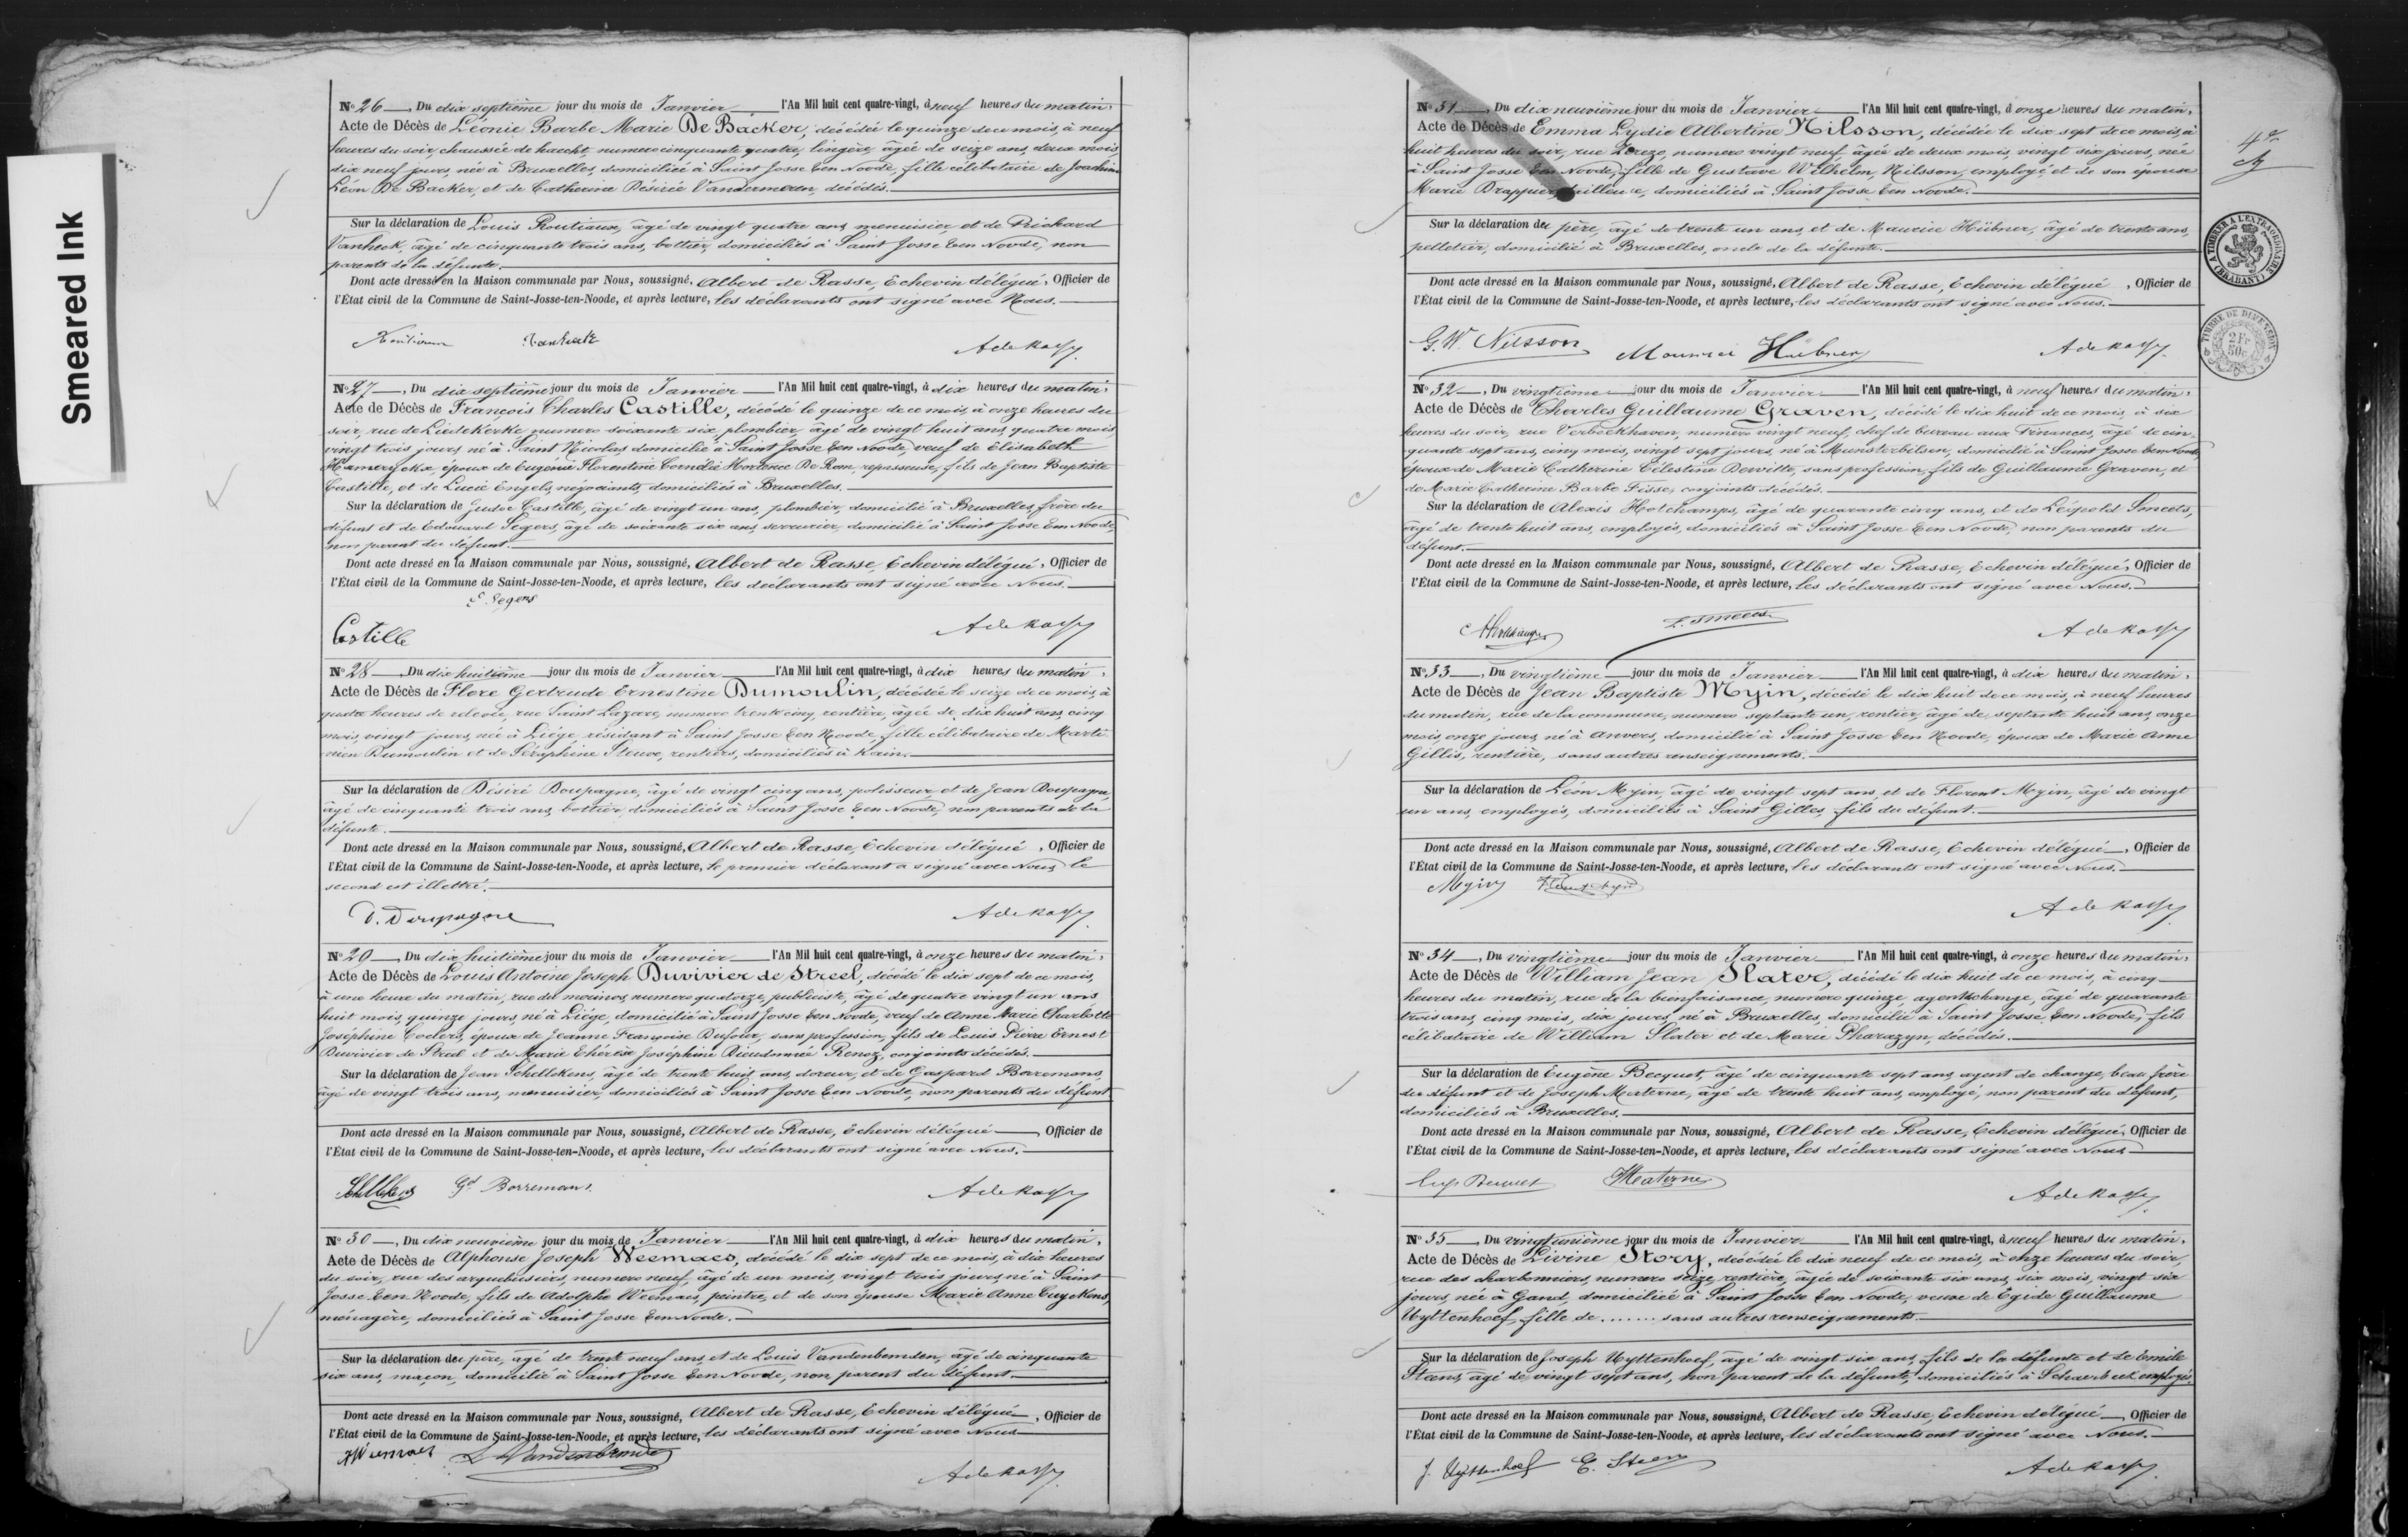 Smeared Ink
No 26, Du dix septième jour du mois de Janvier l'An Mil huit cent quatre-vingt, à neuf heures du matin,
Acte de Décès de Léonie Barbe Marie De Backer, décédée le quinze de ce mois, à neuf
heures du soir, chaussée de haecht, numero cinquante quatre, lingère, âgée de seize ans, deux mois
dix neuf jours, née à Bruxelles, domiciliée à Saint Josse ten Noode, fille célibataire de Joachim
Léon De Backer, et de Catherine Désirée Vandermeren, décédés.
Sur la déclaration de Louis Routiaux, âgé de vingt quatre ans, menuisier, et de Richard
Vanheck, âgé de cinquante trois ans, bottier, domiciliés à Saint Josse ten Noode, non
parents de la défunte.
Dont acte dressé en la Maison communale par Nous, soussigné, Albert de Rasse, Echevin délégué, Officier de
l'État civil de la Commune de Saint-Josse-ten-Noode, et après lecture, les déclarants ont signé avec Nous.
A de Rasse
No 27, Du dix septième jour du mois de Janvier l'An Mil huit cent quatre-vingt, à dix heures du matin,
Acte de Décès de François Charles Castille, décédé le quinze de ce mois, à onze heures du
soir, rue de Liedekerke numero soixante six, plombier, âgé de vingt huit ans, quatre mois,
vingt trois jours, né à Saint Nicolas domicilié à Saint Josse ten Noode, veuf de Elisabeth
Hamerycka, époux de Eugénie Florentine Cornélie Hortence De Rom, repasseuse, fils de Jean Baptiste
Castille, et de Lucie Engels, négociants, domiciliés à Bruxelles.
Sur la déclaration de Judoc Castille, âgé de vingt un ans, plombier, domicilié à Bruxelles, frère du
défunt et de Edouard Segers, âgé de soixante six ans, serrurier, domicilié à Saint Josse ten Noode,
non parent du défunt.
Dont acte dressé en la Maison communale par Nous, soussigné, Albert de Rasse, Echevin délégué, Officier de
l'État civil de la Commune de Saint-Josse-ten-Noode, et après lecture, les déclarants ont signé avec Nous.
E. Segers
Castille A de Rasse
No 28, Du dix huitième jour du mois de Janvier l'An Mil huit cent quatre-vingt, à dix heures du matin,
Acte de Décès de Flore Gertrude Ernestine Dumoulin, décédée le seize de ce mois, à
quatre heures de relevée, rue Saint Lazare, numero trente cinq, rentière, âgée de dix huit ans, cinq
mois, vingt jours, née à Liége, résidant à Saint Josse ten Noode, fille célibataire de Marti
nien Dumoulin et de Séraphine Steuve, rentiers, domiciliés à Kain.
Sur la déclaration de Désiré Doupagne, âgé de vingt cinq ans, polisseur, et de Jean Doupagne,
âgé de cinquante trois ans, bottier, domiciliés à Saint Josse ten Noode, non parents de la
défunte.
Dont acte dressé en la Maison communale par Nous, soussigné, Albert de Rasse, Echevin délégué, Officier de
l'État civil de la Commune de Saint-Josse-ten-Noode, et après lecture, le premier déclarant a signé avec Nous, le
second est illettré.
D. Doupagne A de Rasse
No 29, Du dix huitième jour du mois de Janvier l'An Mil huit cent quatre-vingt, à onze heures du matin,
Acte de Décès de Louis Antoine Joseph Duvivier de Streel, décédé le dix sept de ce mois,
à une heure du matin, rue du mérinos, numero quatorze, publiciste, âgé de quatre vingt un ans,
huit mois, quinze jours, né à Liége, domicilié à Saint Josse ten Noode, veuf de Anne Marie Charlotte
Joséphine Coclers, époux de Jeanne Françoise Dufour, sans profession, fils de Louis Pierre Ernest
Duvivier de Streel et de Marie Thérèse Joséphine Dieudonnée Renoz, conjoints décédés.
Sur la déclaration de Jean Schellekens, âgé de trente huit ans, doreur, et de Gaspard Borremans,
âgé de vingt trois ans, menuisier, domiciliés à Saint Josse ten Noode, non parents du défunt.
Dont acte dressé en la Maison communale par Nous, soussigné, Albert de Rasse, Echevin délégué, Officier de
l'État civil de la Commune de Saint-Josse-ten-Noode, et après lecture, les déclarants ont signé avec Nous.
Gd Borremans A de Rasse
No 30, Du dix neuvième jour du mois de Janvier l'An Mil huit cent quatre-vingt, à dix heures du matin,
Acte de Décès de Alphonse Joseph Weemaes, décédé le dix sept de ce mois, à dix heures
du soir, rue des arquebusiers, numero neuf, âgé de un mois, vingt trois jours, né à Saint
Josse ten Noode, fils de Adolphe Weemaes, peintre, et de son épouse Marie Anne Cuyckens,
ménagère, domiciliés à Saint Josse ten Noode.
Sur la déclaration du père, âgé de trente neuf ans, et de Louis Vandenbemden, âgé de cinquante
six ans, maçon, domicilié à Saint Josse ten Noode, non parent du défunt.
Dont acte dressé en la Maison communale par Nous, soussigné, Albert de Rasse, Echevin délégué, Officier de
l'État civil de la Commune de Saint-Josse-ten-Noode, et après lecture, les déclarants ont signé avec Nous
AWeemaes L Vandenbemden
A de Rasse
No 31, Du dix neuvième jour du mois de Janvier l'An Mil huit cent quatre-vingt, à onze heures du matin,
Acte de Décès de Emma Lydie Albertine Nilsson, décédée le dix sept de ce mois, à
huit heures du soir, rue Verezo, numero vingt neuf, âgée de deux mois, vingt six jours, née
à Saint Josse ten Noode, fille de Gustave Wilhelm Nilsson, employé, et de son épouse
Marie Drappier, tailleuse, domiciliés à Saint Josse ten Noode.
Sur la déclaration du père, âgé de trente un ans, et de Maurice Hübner, âgé de trente ans,
pelletier, domicilié à Bruxelles, oncle de la défunte.
Dont acte dressé en la Maison communale par Nous, soussigné, Albert de Rasse, Echevin délégué, Officier de
l'État civil de la Commune de Saint-Josse-ten-Noode, et après lecture, les déclarants ont signé avec Nous.
G. W. Nilsson Maurice Huebner A de Rasse
A TIMBRER A L'EXTRAORDINAIRE (BRABANT)
TIMBRE DE DIMENSION
2 Fr
50c
No 32, Du vingtième jour du mois de Janvier l'An Mil huit cent quatre-vingt, à neuf heures du matin,
Acte de Décès de Charles Guillaume Graven, décédé le dix huit de ce mois, à six
heures du soir, rue Verboekhaven, numero vingt neuf, chef de bureau aux Finances, âgé de cin-
quante sept ans, cinq mois, vingt sept jours, né à Munsterbilsen, domicilié à Saint Josse ten Noode
époux de Marie Catherine Célestine Dervitte, sans profession, fils de Guillaume Graven, et
de Marie Catherine Barbe Fisse, conjoints décédés.
Sur la déclaration de Alexis Hotchamps, âgé de quarante cinq ans, et de Léopold Smeets,
âgé de trente huit ans, employés, domiciliés à Saint Josse ten Noode, non parents du
défunt.
Dont acte dressé en la Maison communale par Nous, soussigné, Albert de Rasse, Echevin délégué, Officier de
l'État civil de la Commune de Saint-Josse-ten-Noode, et après lecture, les déclarants ont signé avec Nous.
L. Smeets A de Rasse
No 33, Du vingtième jour du mois de Janvier l'An Mil huit cent quatre-vingt, à dix heures du matin,
Acte de Décès de Jean Baptiste Myin, décédé le dix huit de ce mois, à neuf heures
du matin, rue de la commune, numero septante un, rentier, âgé de septante huit ans, onze
mois, onze jours, né à Anvers, domicilié à Saint Josse ten Noode, époux de Marie Anne
Gillis, rentière, sans autres renseignements.
Sur la déclaration de Léon Myin, âgé de vingt sept ans, et de Florent Myin, âgé de vingt
un ans, employés, domiciliés à Saint Gilles, fils du défunt.
Dont acte dressé en la Maison communale par Nous, soussigné, Albert de Rasse, Echevin délégué, Officier de
l'État civil de la Commune de Saint-Josse-ten-Noode, et après lecture, les déclarants ont signé avec Nous.
Myin Florent Myin
A de Rasse
No 34, Du vingtième jour du mois de Janvier l'An Mil huit cent quatre-vingt, à onze heures du matin,
Acte de Décès de William Jean Slater, décédé le dix huit de ce mois, à cinq
heures du matin, rue de la bienfaisance, numero quinze, agent de change, âgé de quarante
trois ans, cinq mois, dix jours, né à Bruxelles, domicilié à Saint Josse ten Noode, fils
célibataire de William Slater et de Marie Pharazyn, décédés.
Sur la déclaration de Eugène Becquet, âgé de cinquante sept ans, agent de change, beau frère
du défunt et de Joseph Materne, âgé de trente huit ans, employé, non parent du défunt,
domiciliés à Bruxelles.
Dont acte dressé en la Maison communale par Nous, soussigné, Albert de Rasse, Echevin délégué, Officier de
l'État civil de la Commune de Saint-Josse-ten-Noode, et après lecture, les déclarants ont signé avec Nous
JMaterne
A de Rasse
No 35, Du vingt unième jour du mois de Janvier l'An Mil huit cent quatre-vingt, à neuf heures du matin,
Acte de Décès de Livine Story, décédée le dix neuf de ce mois, à onze heures du soir,
rue des charbonniers, numero seize, rentière, âgée de soixante six ans, six mois, vingt six
jours, née à Gand, domiciliée à Saint Josse ten Noode, veuve de Egide Guillaume
Uyttenhoef, fille de ....... sans autres renseignements.
Sur la déclaration de Joseph Uyttenhoef, âgé de vingt six ans, fils de la défunte et de Emile
Steens, âgé de vingt sept ans, non parent de la défunte, domiciliés à Schaerbeek employés.
Dont acte dressé en la Maison communale par Nous, soussigné, Albert de Rasse, Echevin délégué, Officier de
l'État civil de la Commune de Saint-Josse-ten-Noode, et après lecture, les déclarants ont signé avec Nous.
J. Uyttenhoef E. Steens A de Rasse